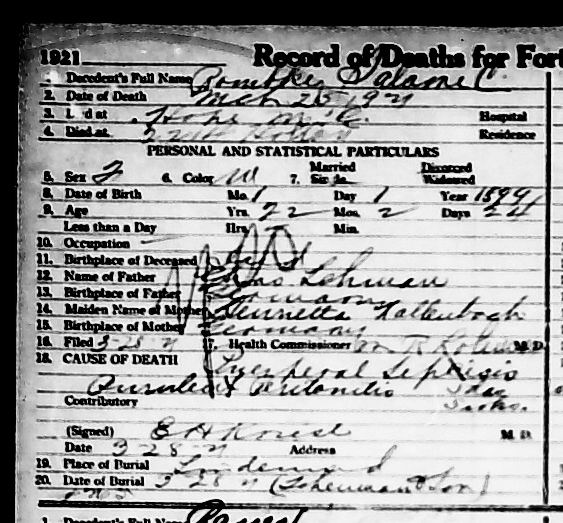 1921 Record of Deaths for Fort
1. Decedent's Full Name Salome C.
2. Date of Death Mch 25 1921
3. L d at Hope Hospital
4. Died at Residence
PERSONAL AND STATISTICAL PARTICULARS
5. Sex F 6. Color W 7. Married Single Divorced Widowed
8. Date of Birth Mo. 1 Day 1 Year 1899
9. Age Yrs. 22 Mos. 2 Days 24
Less than a Day Hrs. Min.
10. Occupation
11. Birthplace of Deceased
12. Name of Father Lehman
13. Birthplace of Father Germany
14. Maiden Name of Mother Henrietta Kaltenbach
15. Birthplace of Mother Germany
16. Filed 3-28-21 17. Health Commissioner M. D.
18. CAUSE OF DEATH Puerperal Sepsis
Purulent Peritonitis
Contributory
(Signed) E H M. D.
Date 3 28 21 Address
19. Place of Burial Lindenwood
20. Date of Burial 3 28 21 (&Son)
1. Decedent's Full Name